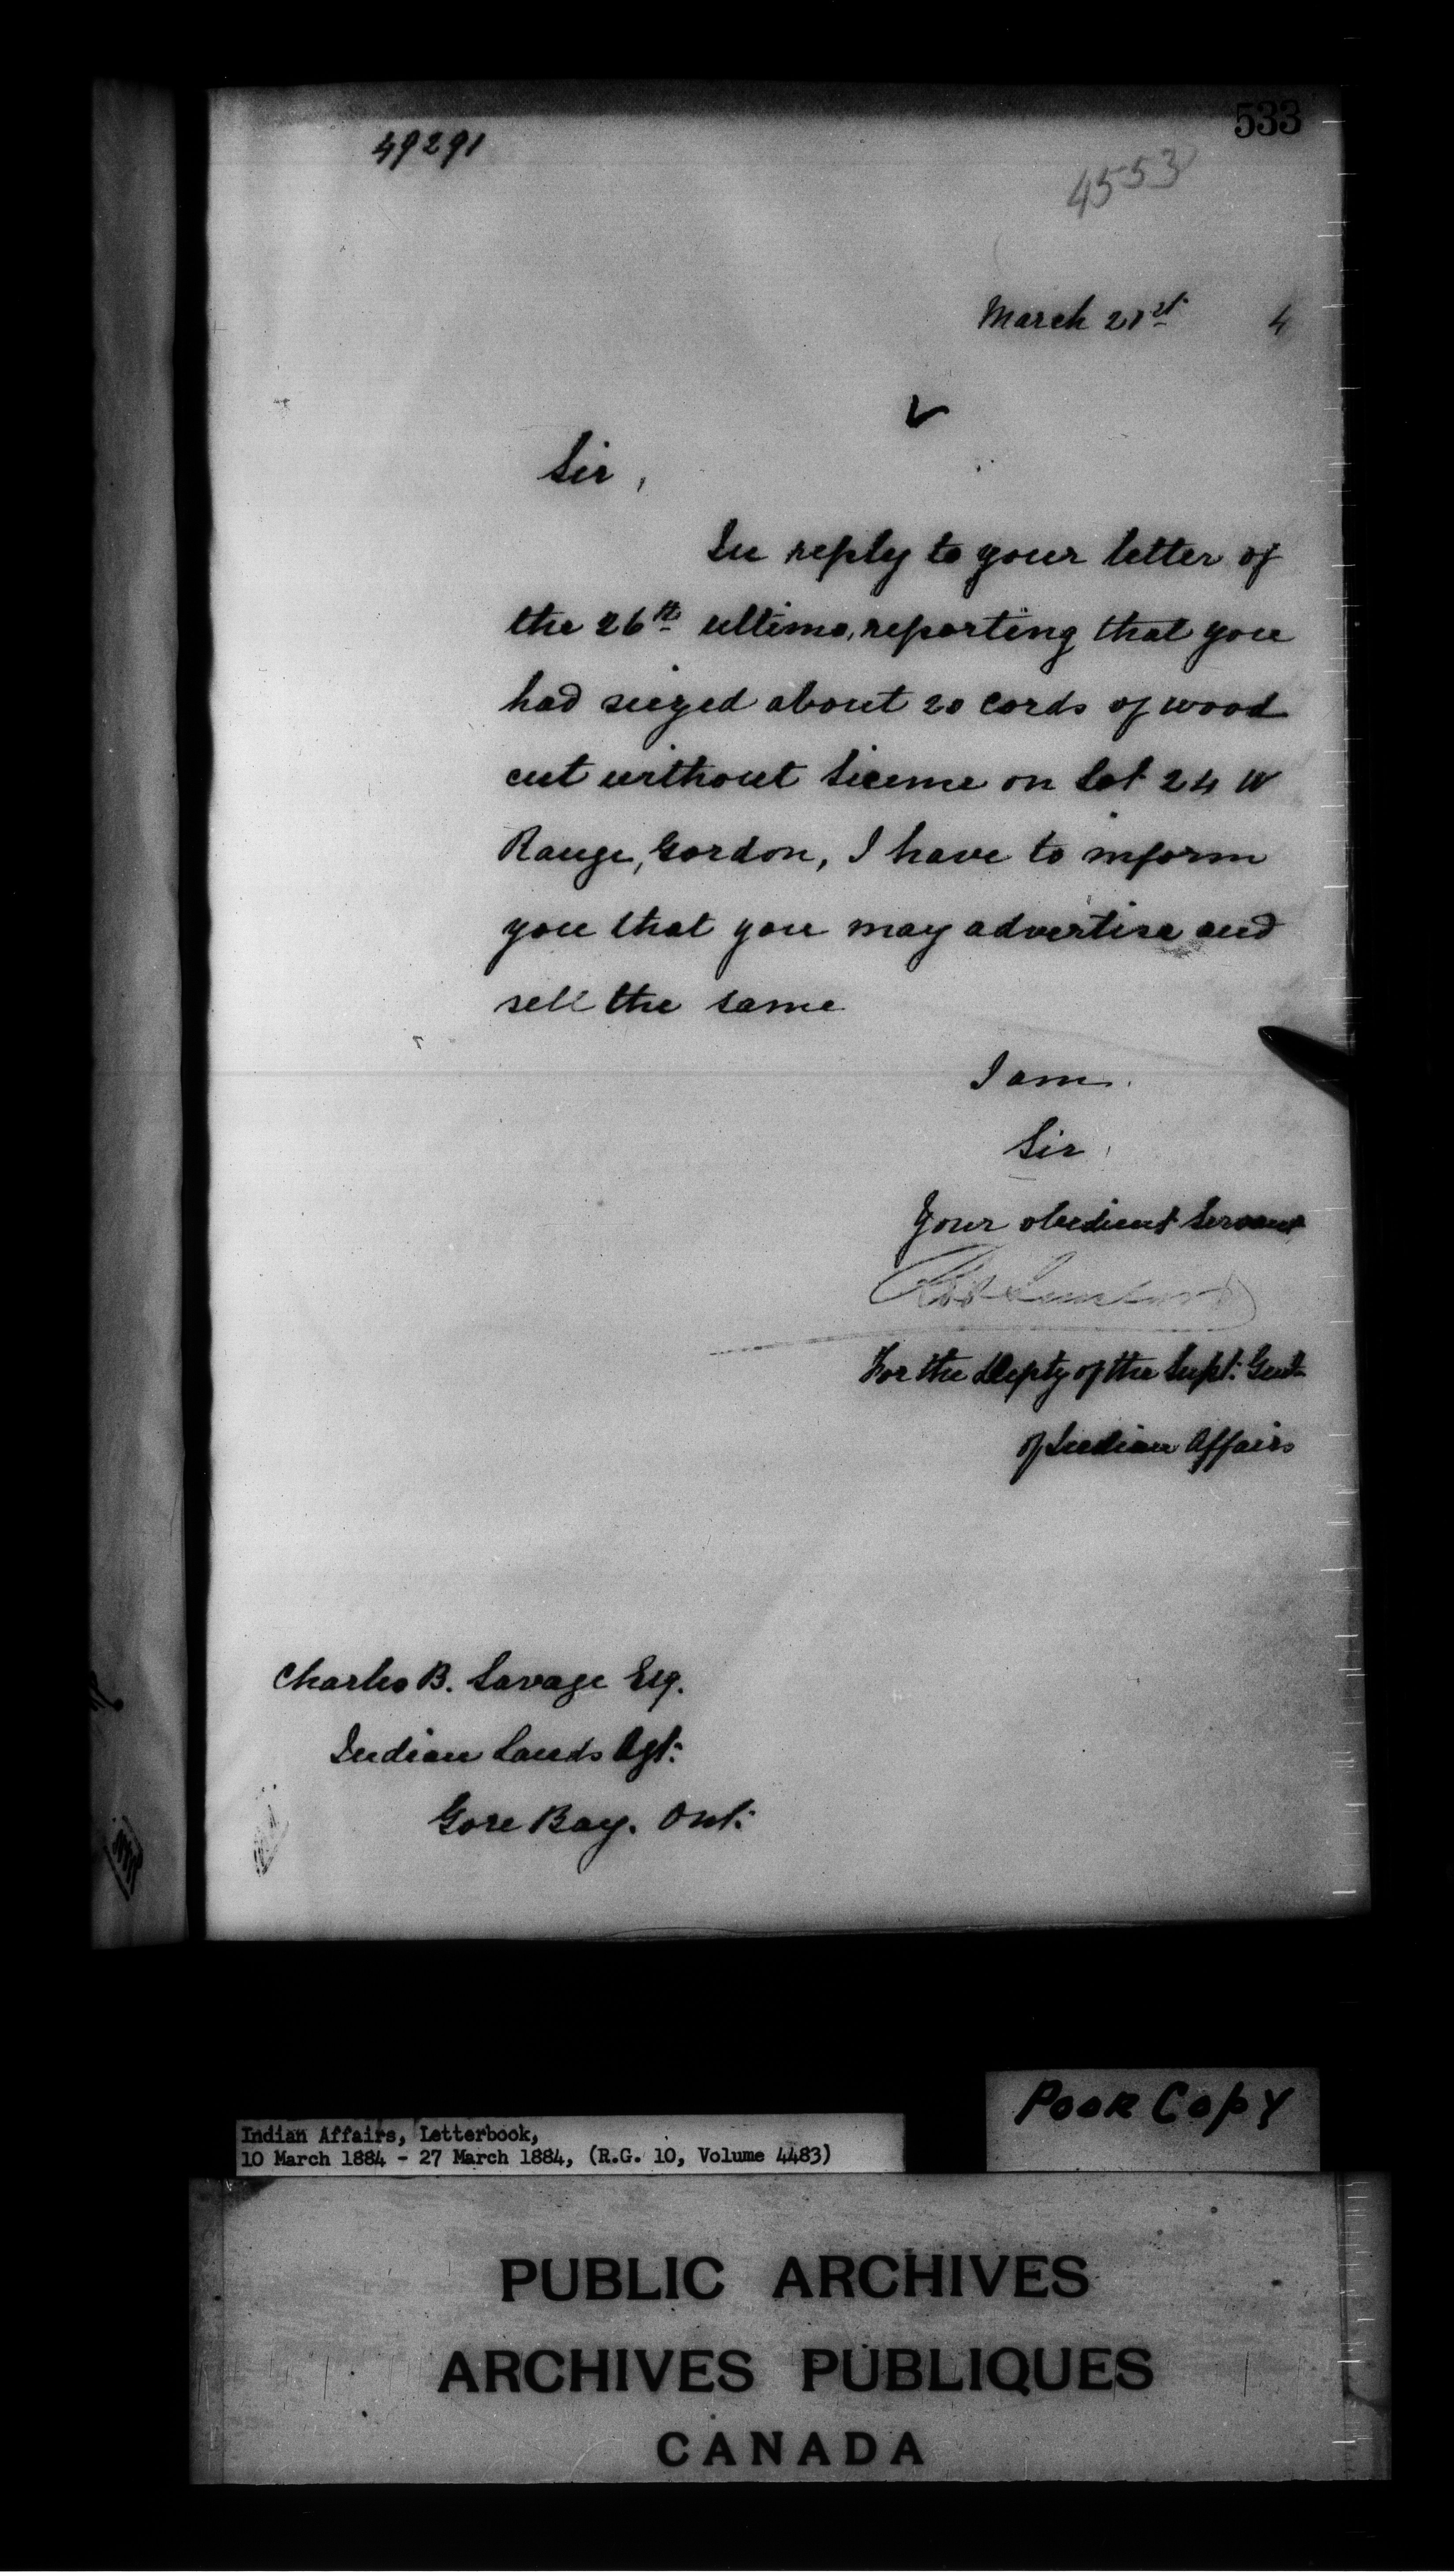 533
49291
4553
March 21st 4
Sir,
In reply to your letter of
the 26th ultimo, reporting that you
had siezed about 20 Cords of wood
cut without license on Lot 24 W
Range, Gordon, I have to inform
you that you may advertise and
sell the same
I am.
Sir,
Your obedient Servant
For the Depty of the Supt: Genl
of Indian Affairs
Charles B. Savage Esq.
Indian Lands Agt:
Gore Bay. Ont:
Poor Copy
Indian Affairs, Letterbook,
10 March 1884 - 27 March 1884, (R.G. 10, Volume 4483)
PUBLIC ARCHIVES
ARCHIVES PUBLIQUES
CANADA